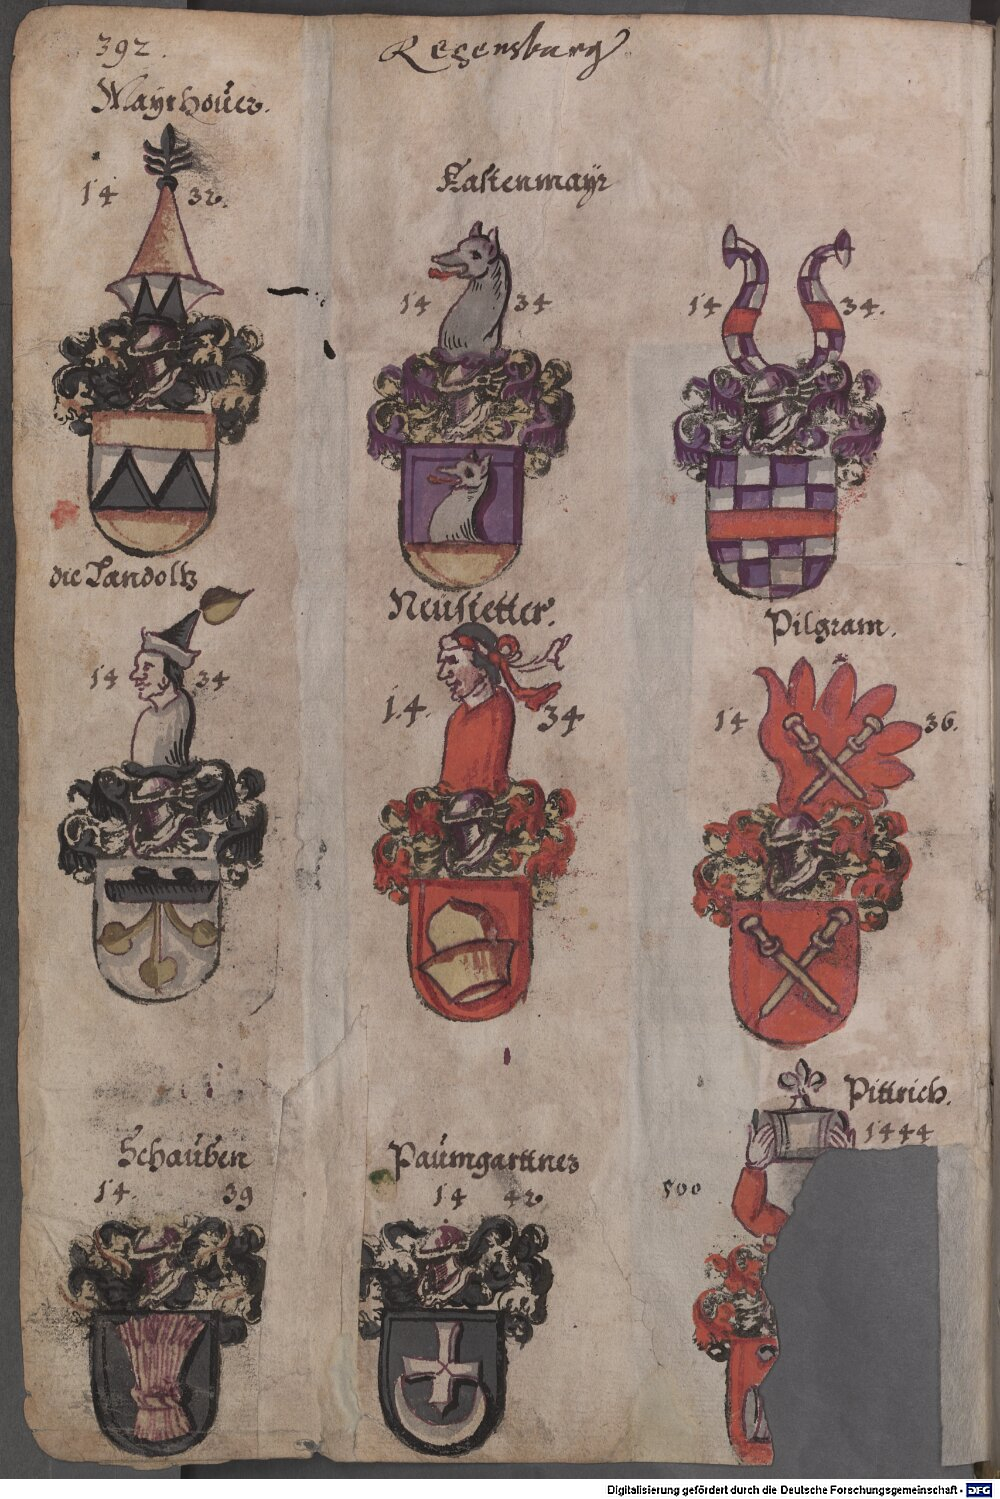 392.
Regensburg
Mayrhouer.
14 32.
Kastenmaÿr
14 34
14 34.
die Landolt
14 34
Neustetter.
14. 34
Pilgram.
14 36.
Schauben
14. 39
Paumgartner
14 42.
Pittrich.
1444
500
Digitalisierung gefördert durch die Deutsche Forschungsgemeinschaft - DFG